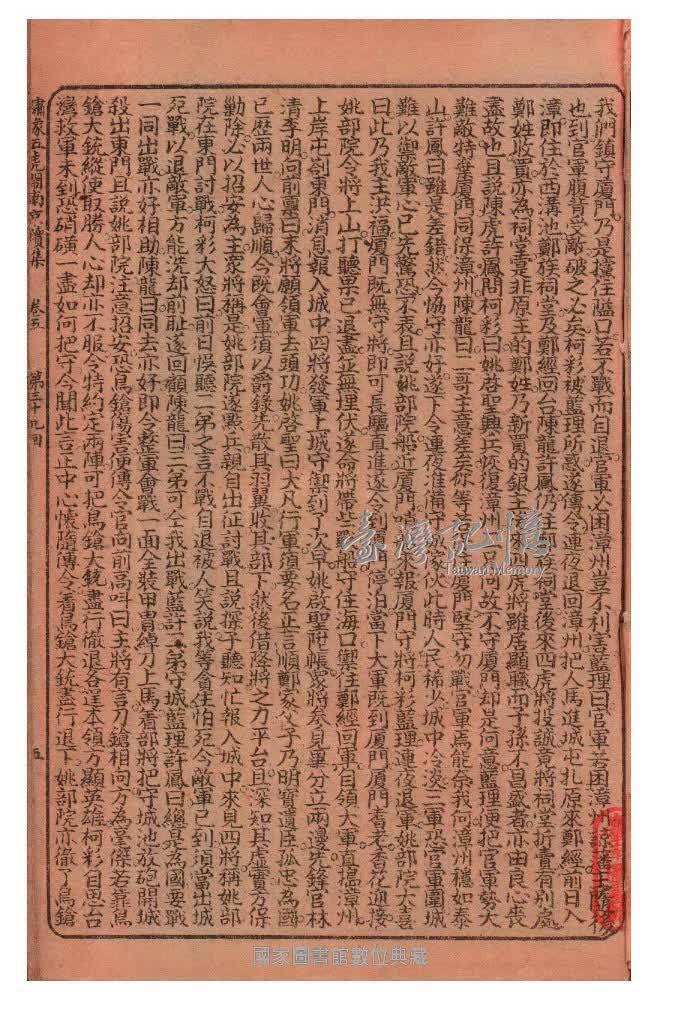 我們鎮守厦門乃是攩住隘口若不戰而自退官軍必困漳州豈不利害藍理曰官軍若困漳州
也到官軍腹背受敵破之必矣柯彩被藍理所惑遂傳令連夜退回漳州把人馬進城屯扎原來鄭經前日入
漳即住於西溝池鄭族祠堂及鄭經回台陳龍許鳳仍住鄭族祠堂後來四虎將投誠竟將祠堂折賣有別處
鄭姓收買亦為祠堂豈是非原主的鄭姓乃新買的銀主後來四虎將雖居顯職而子孫不昌盛者亦由良心喪
盡故也且說陳虎許鳳問柯彩曰姚啓聖興兵恢復漳州二兄何故不守厦門却是何意藍理便把官軍勢大
難敵特棄厦門同保漳州陳龍曰二哥主意差矣你等若在厦門堅守勿戰官軍焉能奈我何漳州穩如泰
山許鳳曰雖是差錯我今恊守亦好遂下令連夜准備守城家伙此時人民稀少城中冷淡三軍恐官軍圍城
難以禦敵軍心已先驚恐不表且說姚部院船近厦門哨船來報厦門守將柯彩藍理連夜退軍姚部院大喜
曰此乃我主洪福厦門既無守將即可長驅直進遂令到厦門停泊當下大軍既到厦門厦門耆老香花迎接
姚部院令將上山打聽果已退盡並無埋伏遂命將帶兵點將守住海口禦住鄭經回軍自領大軍直搗漳州
上岸屯剳東門消息報入城中四將發軍上城守禦到了次早姚啟聖陞帳眾將叅見畢分立兩邊先鋒官林
清李明向前稟曰末將願領軍去頭功姚啓聖曰大凡行軍須要名正言順鄭家父子乃明實遺臣孤忠為國
已歷兩世人心歸順今既會軍須以爵錄先散其羽翼收其部下然後借降將之力平台且深知其虛實方保
勦除必以招安為主眾將稱是姚部院遂點兵親自出征討戰且說探子聽知忙報入城中來見四將稱姚部
院在東門討戰柯彩大怒曰前日悞聽二弟之言不戰自退被人笑說我等貪生怕死今敵軍已到須當出城
死戰以退敵軍方能洗却前耻遂回顧陳龍曰三弟可仝我出戰藍許二弟守城藍理許鳳曰總是為國要戰
一同出戰亦好相助陳龍曰同去亦好即令整軍會戰一面全裝甲胄綽刀上馬着部將把守城池放砲開城
殺出東門且說姚部院注意招安恐鳥鎗傷害便傳令官向前高叫曰主將有言刀鎗相向方為豪傑若靠鳥
鎗大銃縱使取勝人心却亦不服今特約定兩陣可把鳥鎗大銃盡行徹退各逞本領方顯英雄柯彩自思台
灣救軍未到恐硝磺一盡如何把守今聞此言正中心懷隨傳令着鳥鎗大銃盡行退下姚部院亦徹了鳥鎗
繡像五虎鬧南京續集 卷五 第三十九回 五
臺灣記憶
Taiwan Memory
國家圖書館數位典藏